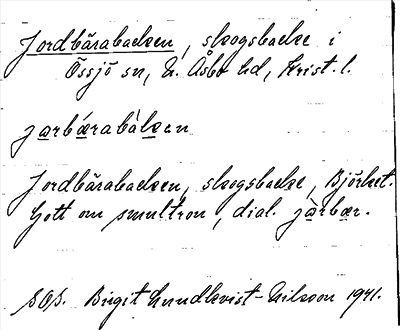 Jordbärabacken, skogsbacke i
Össjö sn, N. Åsbo hd, Krist. l.
jarbærabàken
Jordbärabacken, skogsbacke, Björket.
Gott om smultron, dial. jàrbær.
SOS. Birgit Lundkvist-Nilsson 1941.